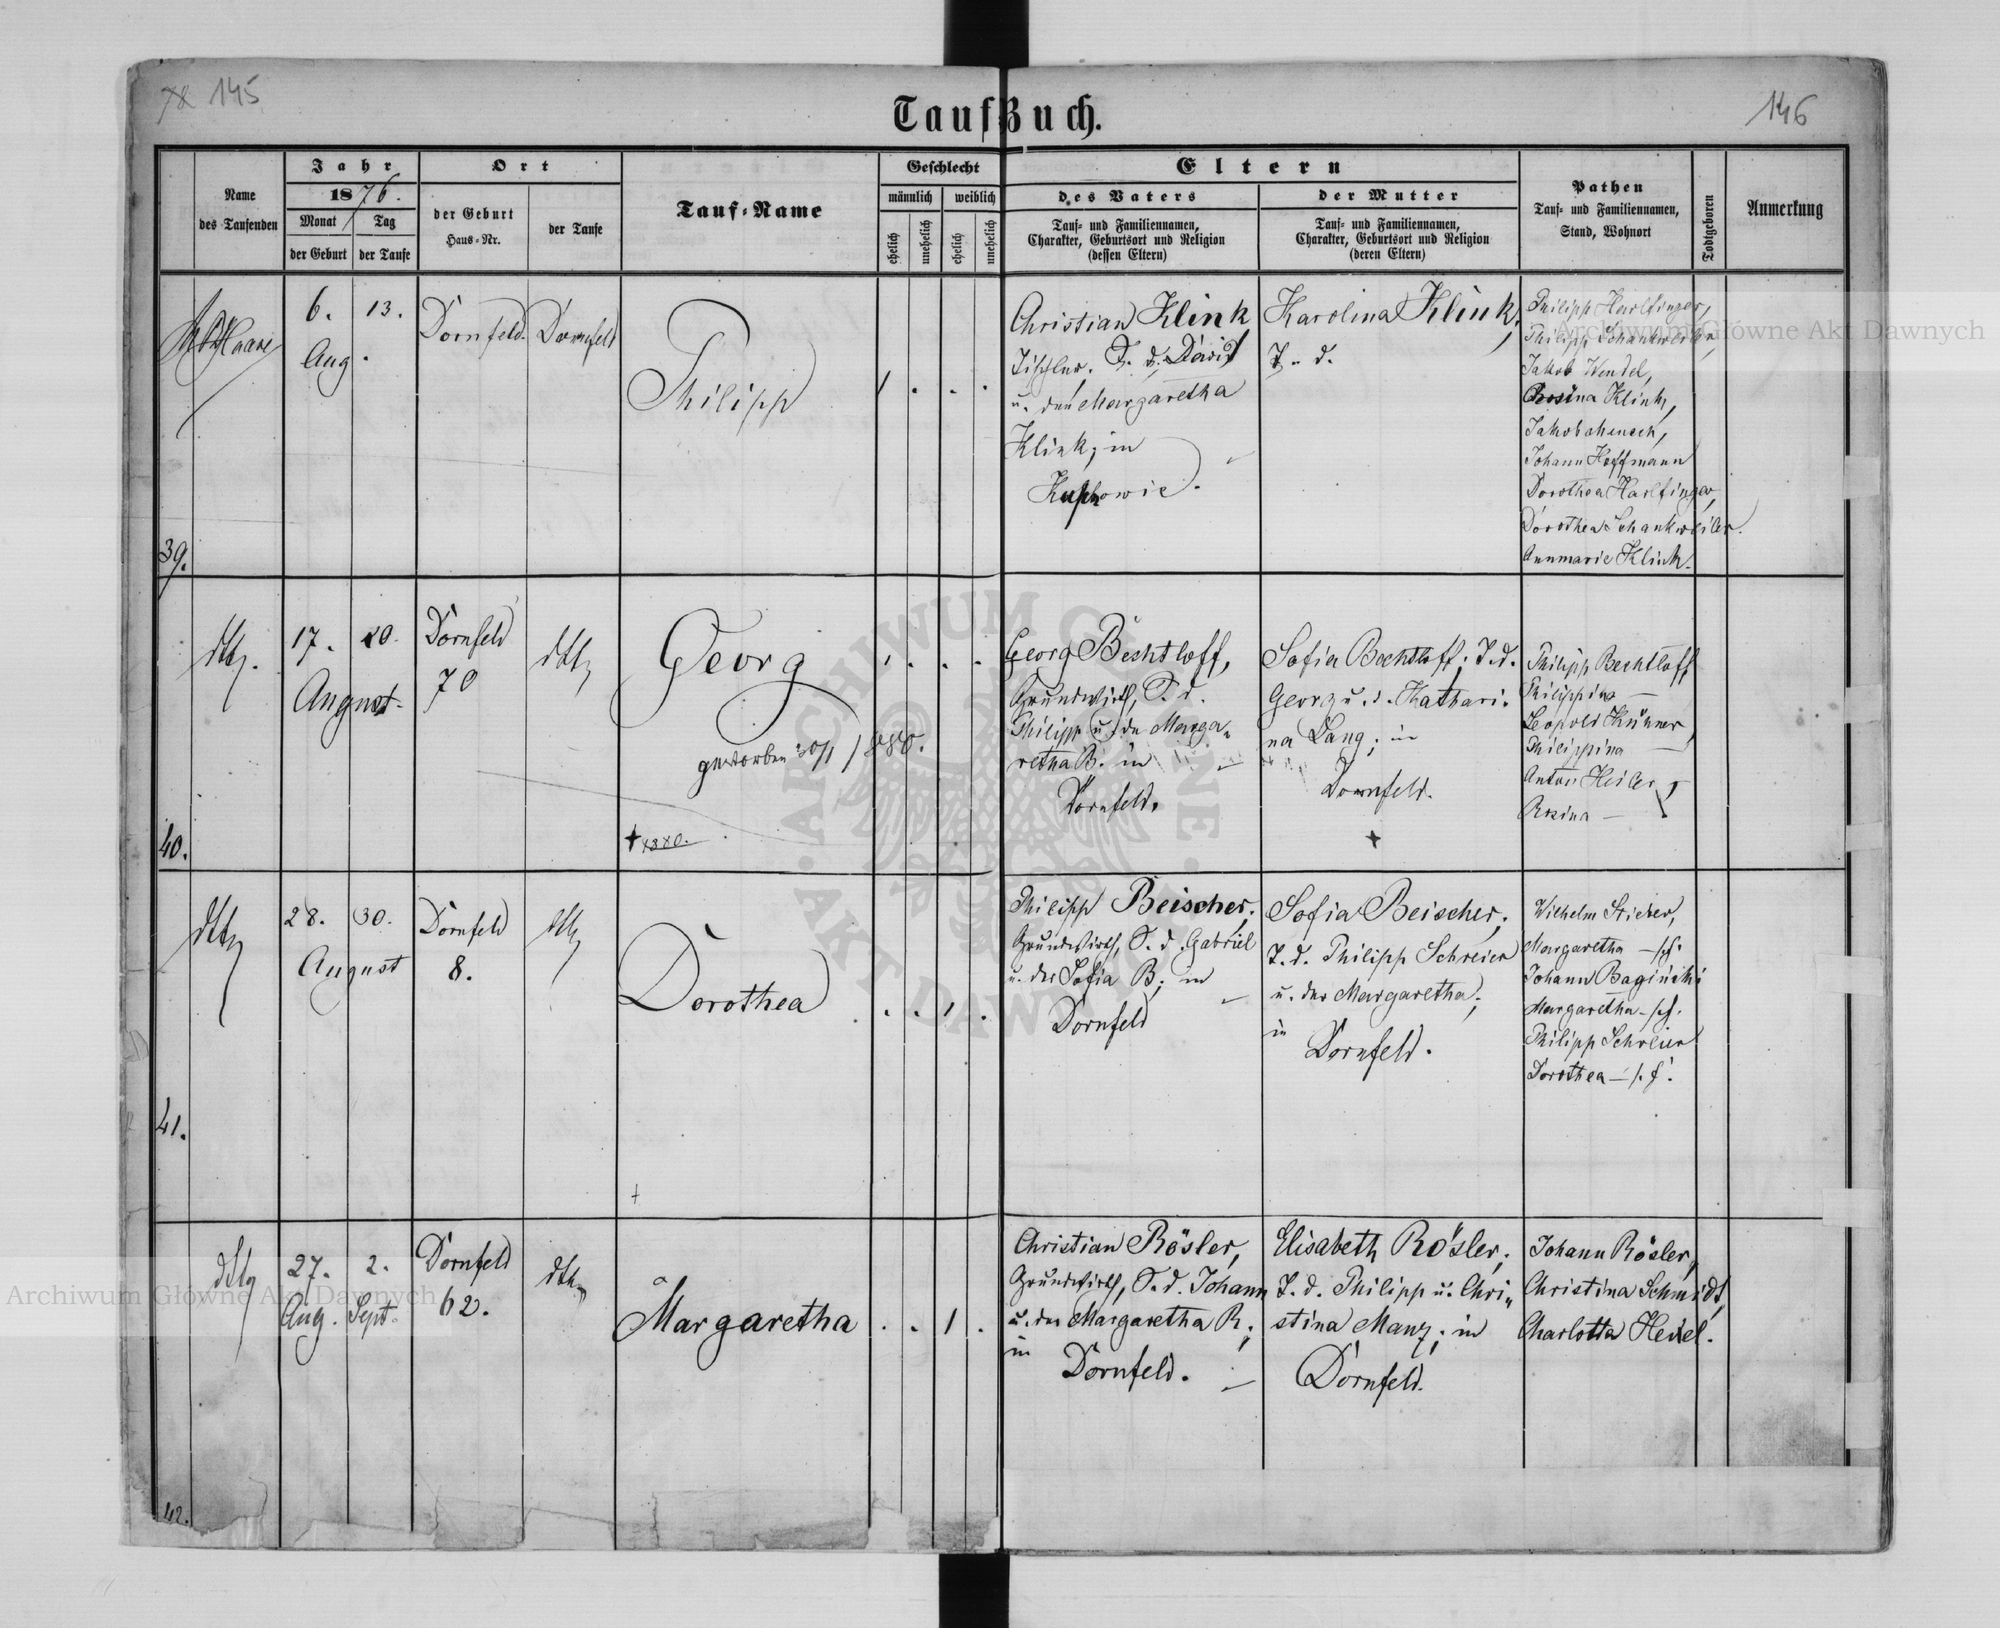 145
146
TaufBuch.
Name
des Taufenden
Jahr
1876.
Monat
Tag
der Geburt
der Taufe
Ort
der Geburt
Haus-Nr.
der Taufe
Tauf-Name
Geschlecht
männlich
weiblich
ehelich
unehelich
ehelich
unehelich
Eltern
des Vaters
Tauf- und Familiennamen,
Charakter, Geburtsort und Religion
(dessen Eltern)
der Mutter
Tauf- und Familiennamen,
Charakter, Geburtsort und Religion
(deren Eltern)
Pathen
Tauf- und Familiennamen,
Stand, Wohnort
Todtgeboren
Anmerkung
39.
6.
Aug.
13.
Dornfeld.
Dornfeld
Philipp
1 . . .
Christian Klink,
Tischler. S. d. David
u. der Margaretha
Klink; in
Karolina Klink,
T. d.
Philipp Harlfinger,
Philipp Schankweiler,
Jakob Wendel,
Rosina Klink,
Johann Hoffmann
Dorothea Harlfinger,
Dorothea Schankweiler.
Annmarie Klink.
40.
dtto.
17. 20.
August.
Dornfeld
70
dtto
Georg
gestorben 30/1 1880.
+ 1880.
1 . . .
Georg Bechtloff,
Grundwirth, S. d.
Philipp u. der Marga-
retha B. in
Dornfeld.
Sofia Bechtloff; T. d.
Georg u. d. Kathari-
na Lang; in
Dornfeld.
+
Philipp Bechtloff,
Philippina —
Leopold Kühner
Philippina —
Anton Heiler,
Rosina —
41.
dtto
28. 30.
August
Dornfeld
8.
dtto
Dorothea
+
. . 1 .
Philipp Beischer,
Grundwirth, S. d. Gabriel
u. der Sofia B; in
Dornfeld
Sofia Beischer;
T. d. Philipp Schreier
u. der Margaretha;
in
Dornfeld.
Wilhelm Stieber,
Margaretha —
Johann Baginski
Margaretha —
Philipp Schreier
Dorothea —
42.
dtto
27.
Aug.
2.
Sept.
Dornfeld
62.
dtto
Margaretha
. . 1 .
Christian Rösler,
Grundwirth, S. d. Johann
u. der Margaretha R.;
in
Dornfeld.
Elisabeth Rösler;
T. d. Philipp u. Chri-
stina Manz; in
Dornfeld.
Johann Rösler,
Christina Schmidt,
Charlotta
Archiwum Główne Akt Dawnych
Archiwum Główne Akt Dawnych